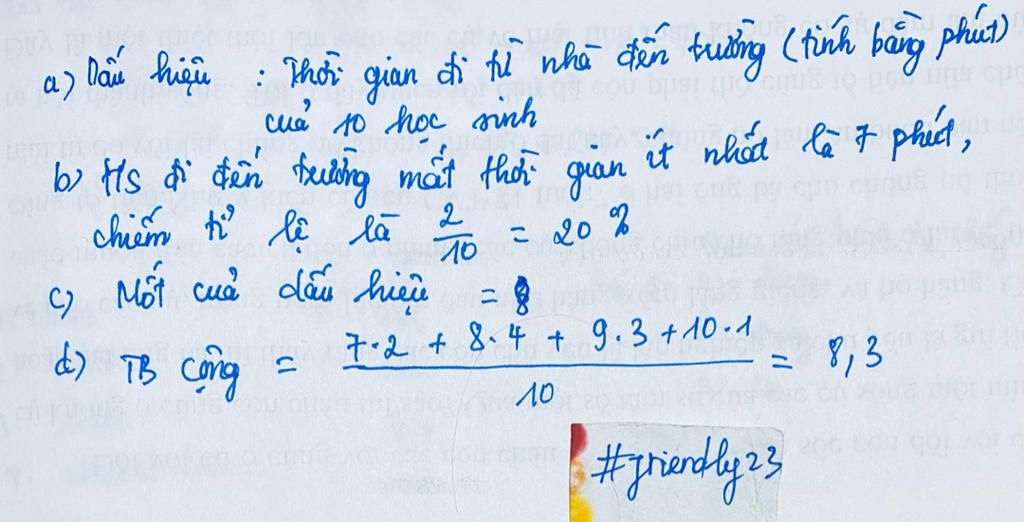 a) Dấu hiệu : Thời gian đi từ nhà đến trường (tính bằng phút)
của 10 học sinh
b) HS đi đến trường mất thời gian ít nhất là 7 phút,
chiếm tỉ lệ là 2/10 = 20 %
c) Mốt của dấu hiệu = 8
d) TB cộng = (7.2 + 8.4 + 9.3 + 10.1)/10 = 8,3
#friendly23